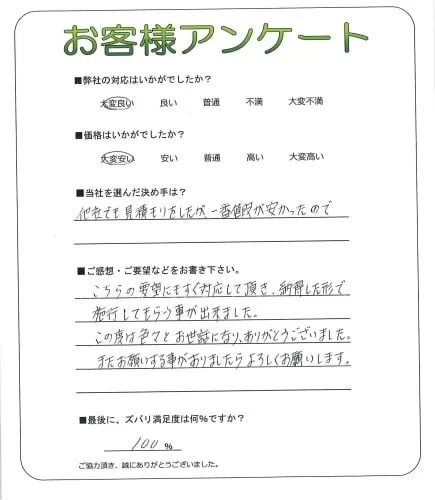 お客様アンケート
■弊社の対応はいかがでしたか？
大変良い 良い 普通 不満 大変不満
■価格はいかがでしたか？
大変安い 安い 普通 高い 大変高い
■当社を選んだ決め手は？
他社でも見積もりをしたが、一番値段が安かったので
■ご感想・ご要望などをお書き下さい。
こちらの要望にもすぐ対応して頂き、納得した形で
施行してもらう事が出来ました。
この度は色々とお世話になり、ありがとうございました。
またお願いする事がありましたらよろしくお願いします。
■最後に、ズバリ満足度は何％ですか？
100 ％
ご協力頂き、誠にありがとうございました。